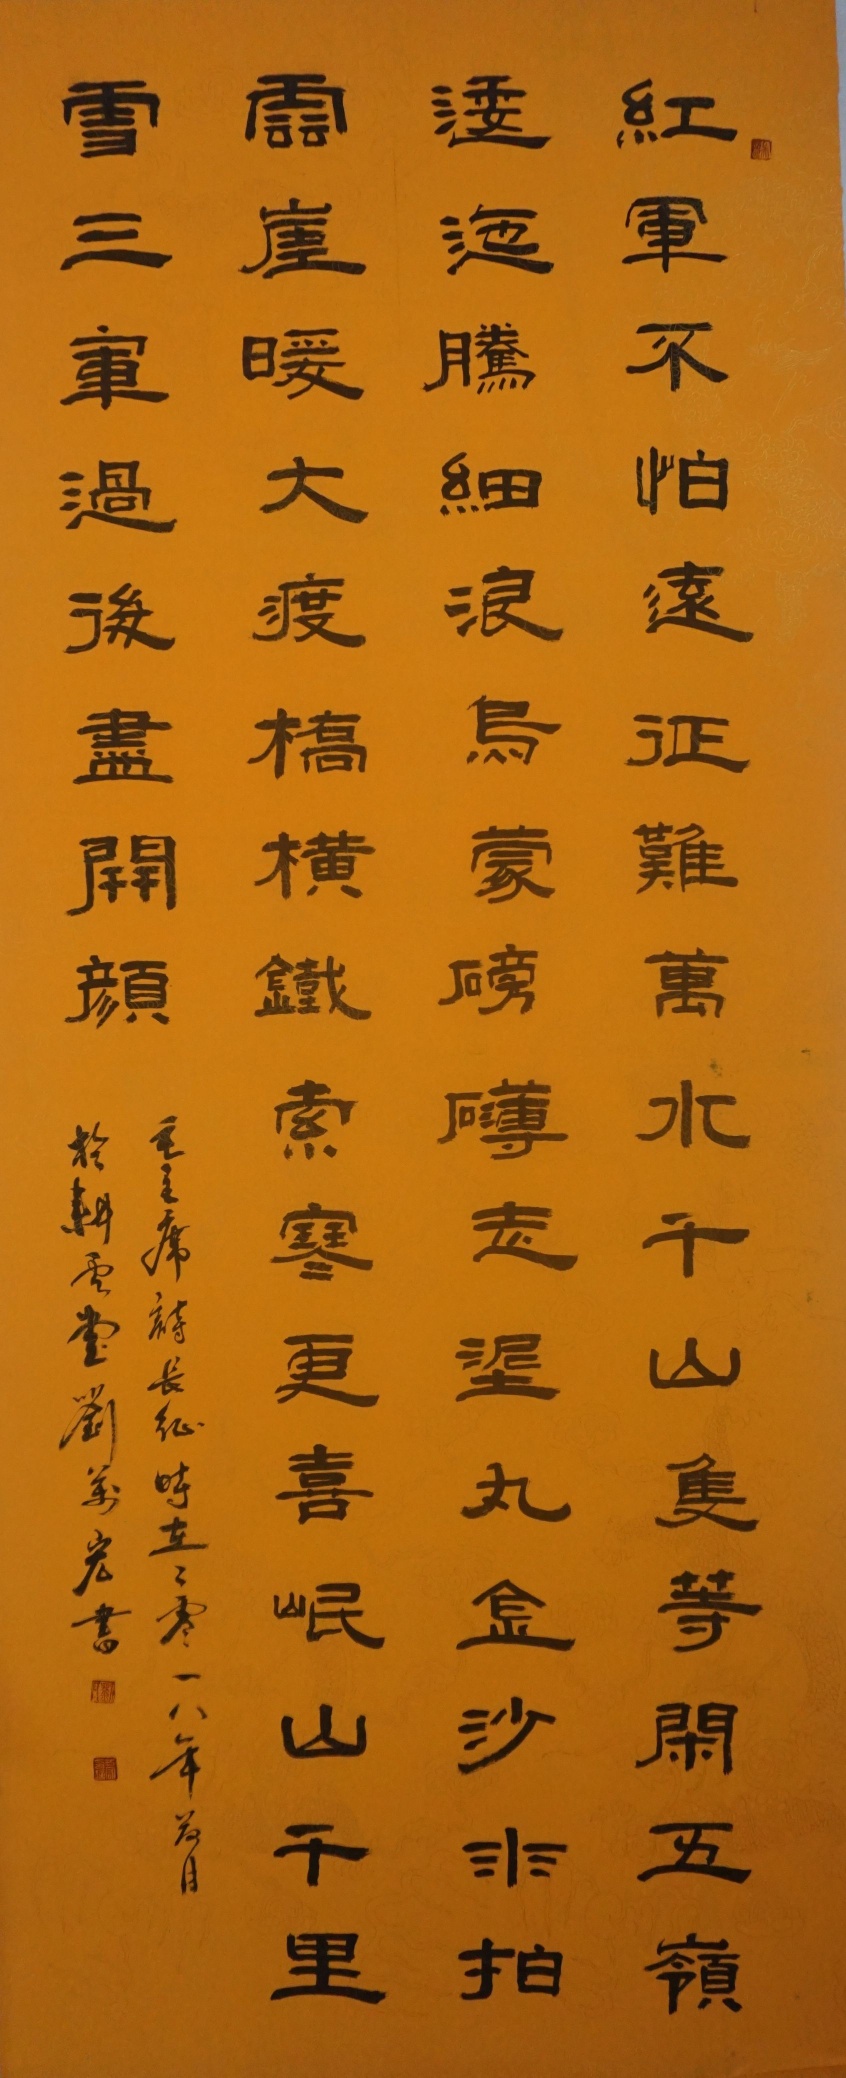 紅軍不怕遠征難萬水千山隻等閑五嶺
逶迤騰細浪烏蒙磅礴走埿丸金沙水拍
雲崖暖大渡橋橫鐵索寒更喜岷山千里
雪三軍過後盡開顏
毛主席詩長征時在二零一八年荷月
於耕雲堂劉萬宏書